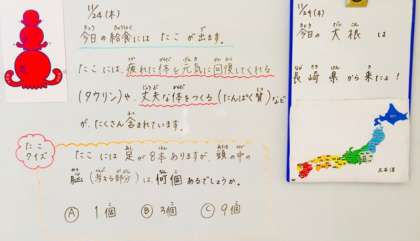 11/24(木)
今日の給食には たこ が 出ます。
たこ には、疲れた体を元気に回復してくれる
(タウリン)や、丈夫な体をつくる(たんぱく質)など
が、たくさん含まれています。
たこ
クイズ
たこ には 足が8本ありますが、頭の中の
脳(考える部分)は、何個あるでしょうか。
Ⓐ 1個 Ⓑ 3個 Ⓒ 9個
11/24(木)
今日の 大根 は
長崎県から来たよ!